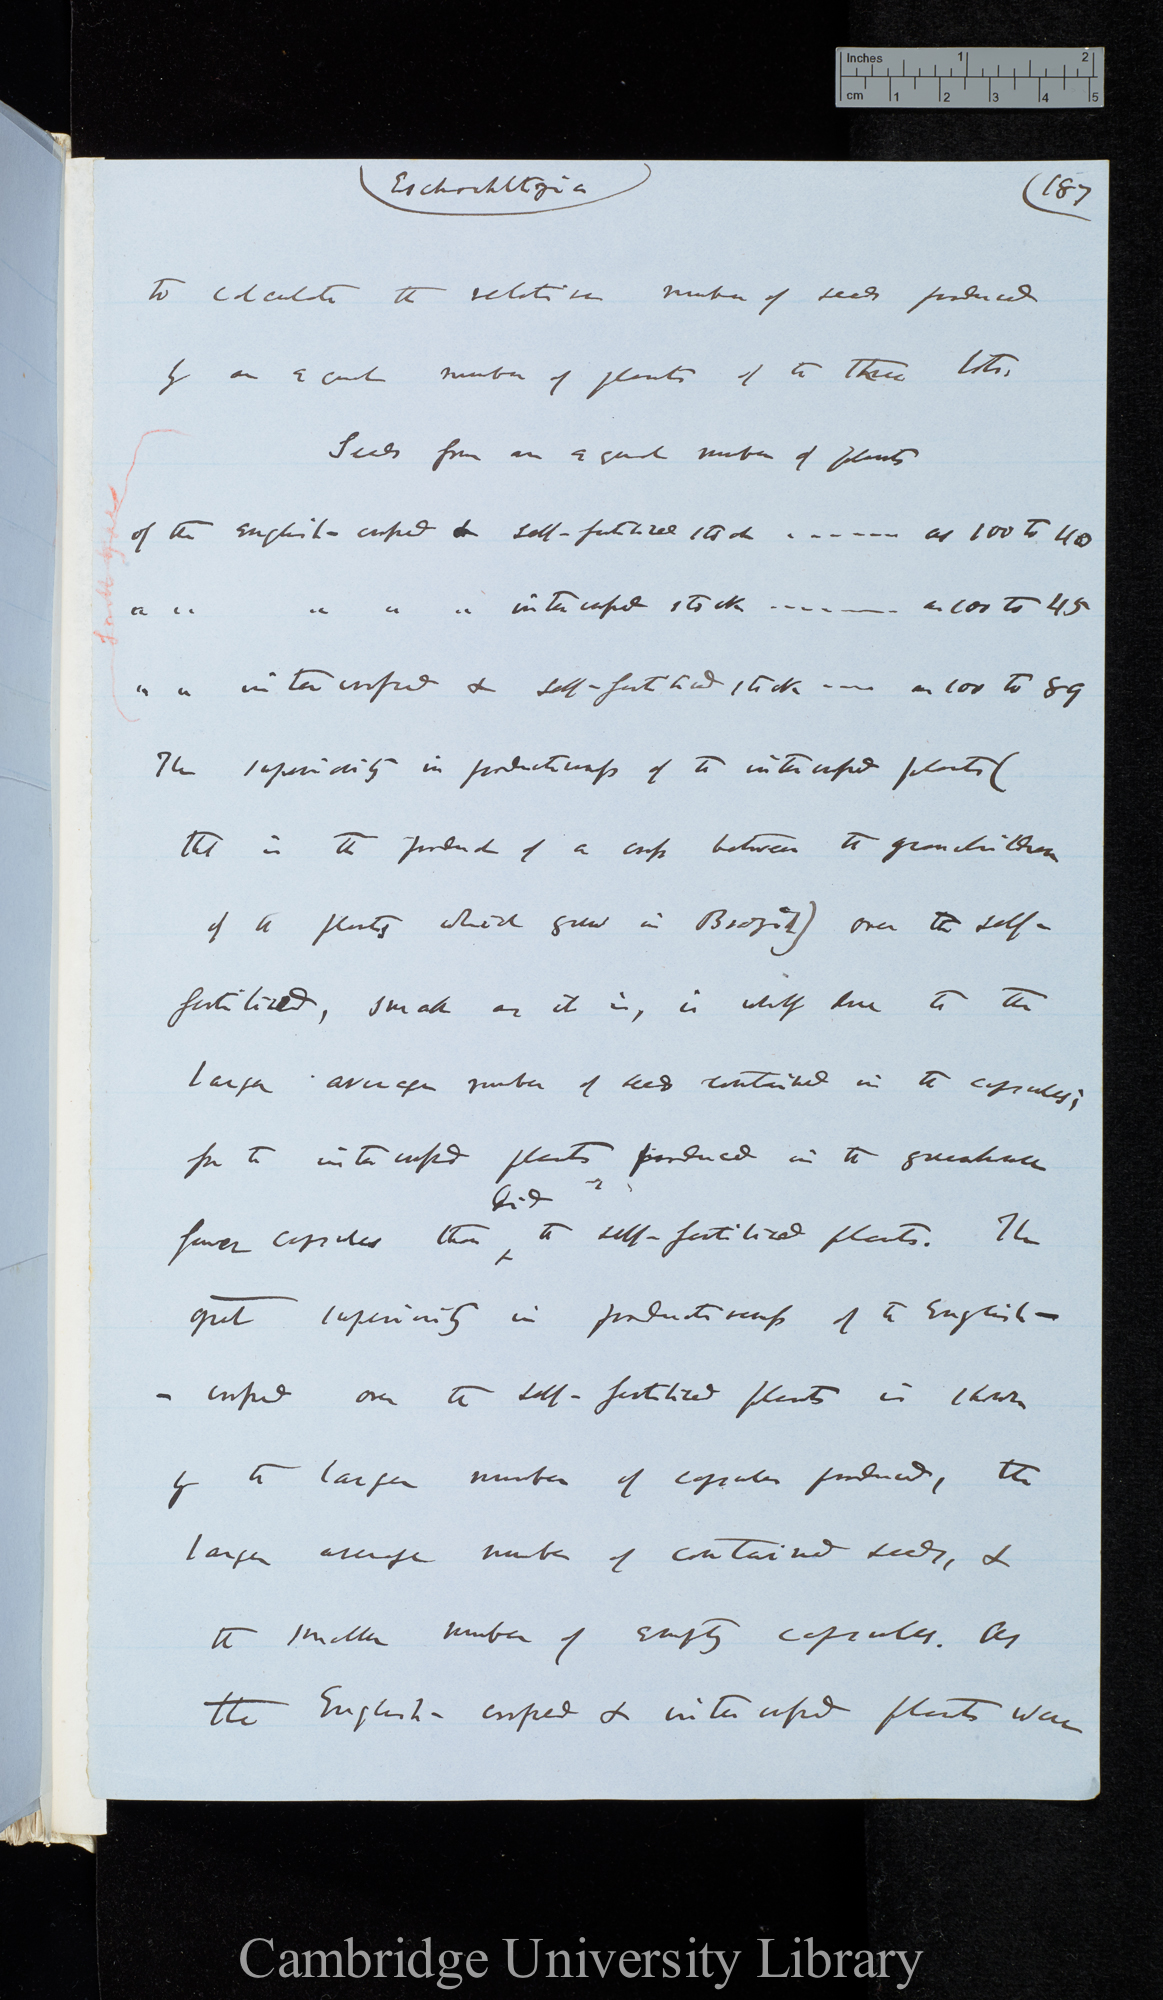 Inches 1 2
cm 1 2 3 4 5
Eschscholtzia
(187
to calculate the relative number of seeds produced
by an equal number of plants of the three lots.
Seeds from an equal number of plants
of the English-crossed & self-fertilized stock ------ as 100 to 40
" " " " " intercrossed stock ------- as 100 to 45
" " intercrossed & self-fertilized stock ---- as 100 to 89
The superiority in productiveness of the intercrossed plants (
that is the product of a cross between the grandchildren
of the plants which grew in Brazil) over the self-
fertilized, small as it is, is wholly due to the
larger average number of seeds contained in the capsules;
for the intercrossed plants produced in the greenhouse
did
fewer capsules than the self-fertilized plants. The
great superiority in productiveness of the English-
- crossed over the self-fertilized plants is shown
by the larger number of capsules produced, the
larger average number of contained seeds, &
the smaller number of empty capsules. As
the English-crossed & intercrossed plants were
Cambridge University Library